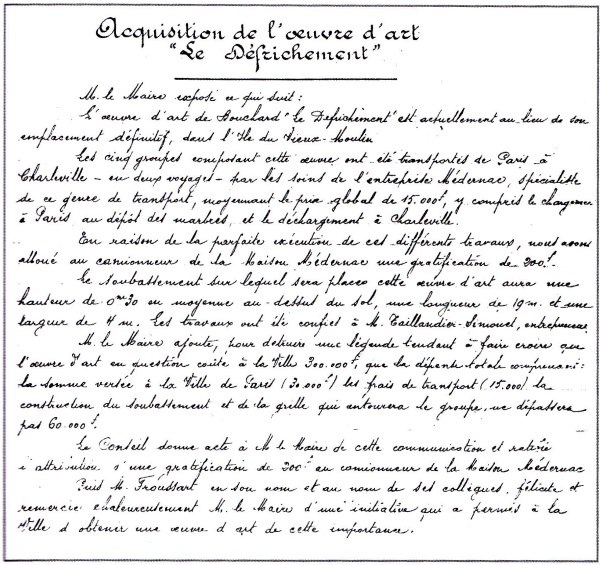 Acquisition de l'œuvre d'art
"Le Défrichement"
M. le Maire expose ce qui suit :
L'œuvre d'art de Bouchard "Le Defrichement" est actuellement au lieu de son
emplacement définitif, dans l'Ile du Vieux-Moulin
Les cinq groupes composant cette œuvre ont été transportés de Paris à
Charleville - en deux voyages - par les soins de l'entreprise Médernac, spécialiste
de ce genre de transport, moyennant le prix global de 15.000f, y compris le chargeme
à Paris, au dépôt des marbres, et le déchargement à Charleville.
En raison de la parfaite exécution de ces différents travaux, nous avons
alloué au camionneur de la Maison Médernac une gratification de 200f.
Le soubassement sur lequel sera placée cette œuvre d'art aura une
hauteur de 0m30 en moyenne au-dessus du sol, une longueur de 19m. et une
largeur de 4 m. Les travaux ont été confiés à M. Taillandier-Simonet, entrepreneur
M. le Maire ajoute, pour détruire une légende tendant à faire croire que
l'œuvre d'art en question coûte à la Ville 300.000f, que la dépense totale comprenant :
la somme versée à la Ville de Paris (30.000f) les frais de transport (15.000) la
construction du soubassement et de la grille qui entourera le groupe, ne dépassera
pas 60.000f.
Le Conseil donne acte à M le Maire de cette communication et ratifie
l attribution d'une gratification de 200f au camionneur de la Maison Médernac
Puis M. Froussart en son nom et au nom de ses collègues, félicite et
remercie chaleureusement M. le Maire d'une initiative qui a permis à la
Ville d obtenir une œuvre d art de cette importance.